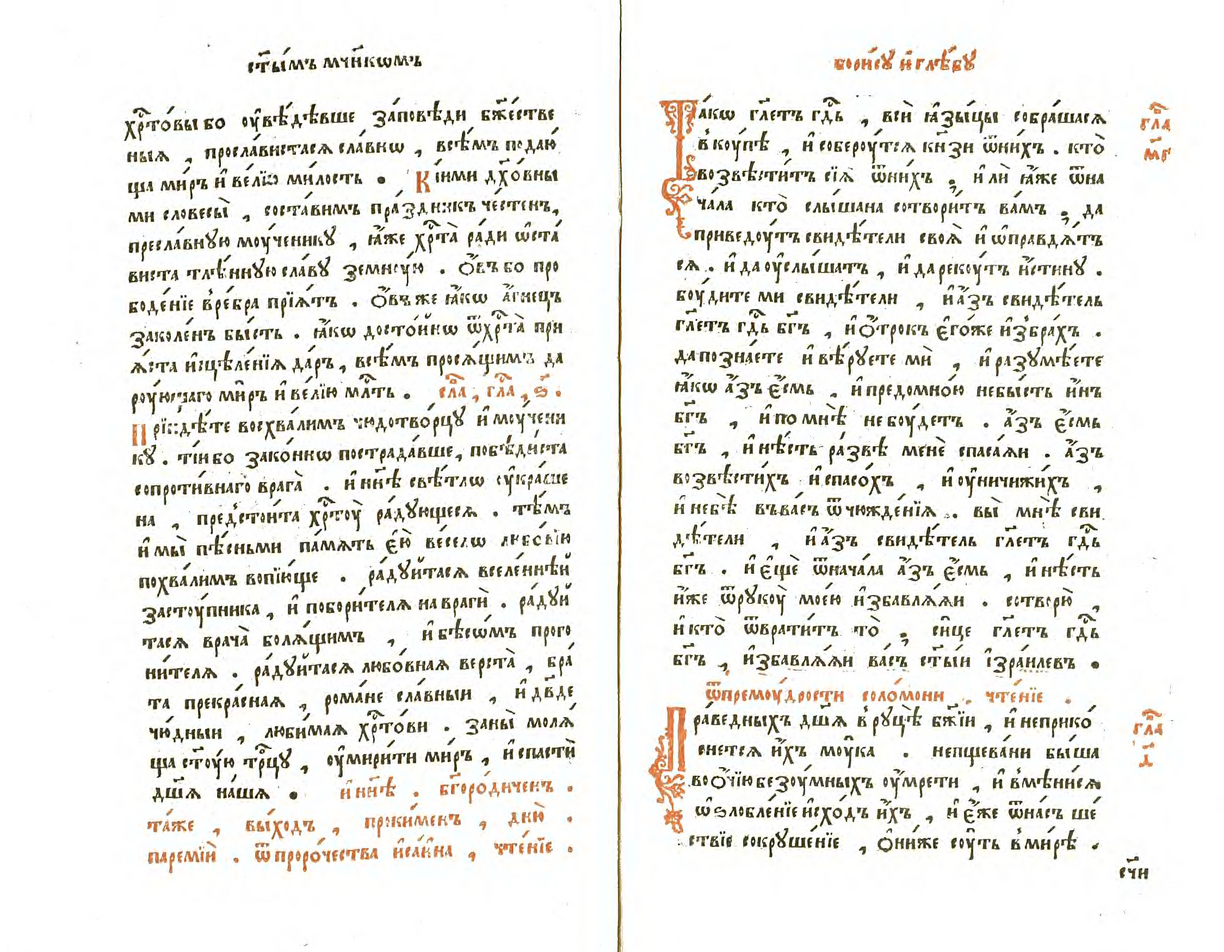 ст҃ы́мъ мч҃нкѡмъ
хр҃то́вы бо ᲂу҆вѣ́дѣвше за́повѣди бж҃е́стве
ныѧ , просла́вистасѧ сла́внѡ , всѣ́мъ подаю
ща ми́ръ и҆ ве́лїю ми́лость .
Кі́ими дх҃о́вны
ми словесы̀ , соста́вимъ пра́здникъ че́стенъ,
пресла́вную мо́ученику , ꙗ҆́же хр҃та̀ ради ѡ҆ста́
виста тлѣ́нную сла́ву земну́ю . Ѻ҆́въ бо про
боде́нїе в ре́бра прїѧ́тъ . Ѻ҆́въ же ꙗ҆́кѡ а҆́гнецъ
заколе́нъ бы́сть . ꙗ҆́кѡ досто́йнѡ ѿ хр҃та̀ при
ѧ́ста и҆сцѣле́нїѧ да́ръ , всѣ́мъ просѧ́щимъ да
рᲂу́ющаго ми́ръ и҆ ве́лїю мл҃ть .
сла҃ , гла҃ , ѕ҃ .
Прїидѣ́те восхва́лимъ чюдотво́рцу и҆ мᲂу́чени
ку . ті́и бо зако́ннѡ пострада́вше, побѣди́ста
сопроти́внаго врага̀ . и҆ нн҃ѣ свѣ́тлѡ ᲂу҆кра́ше
на , предстои́та хр҃тᲂу̀ ра́дующесѧ . тѣ́мъ
и҆ мы̀ пѣ́сньми па́мѧть є҆ю̀ ве́селѡ любо́вїю
похва́лимъ вопїю́ще . ра́дуйтасѧ вселе́ннѣй
застᲂу́пника , и҆ побори́телѧ на врагѝ . ра́дуй
тасѧ врача̀ болѧ́щимъ , и҆ бѣсѡ́мъ прого
ни́телѧ . ра́дуйтасѧ любо́внаѧ верста̀ , бра́
та прекра́снаѧ , рома́не сла́вныи , и҆ дв҃де
чю́дныи , люби́маѧ хр҃то́ви . за ны̀ молѧ̀
ща ст҃ᲂу́ю трⷪ҇цу , ᲂу҆мири́ти ми́ръ , и҆ спастѝ
дш҃ѧ на́шѧ .
и҆ нн҃ѣ . бг҃оро́диченъ .
та́же , вы́ходъ , проки́менъ , дню̀ .
паремїѝ . ѿ проро́чества и҆са́їина , чте́нїе .
бори́су и҆ глѣ́бу
Та́кѡ гл҃етъ гд҃ь , всѝ ꙗ҆зы́цы собра́шасѧ
вкᲂу́пѣ , и҆ соберᲂу́тсѧ кнѧ҃зи ѿ ни́хъ . кто̀
возвѣсти́тъ сїѧ̀ ѿ ни́хъ , и҆ли ꙗ҆́же ѿ на
ча́ла кто̀ слы́шана сотвори́тъ ва́мъ , да
приведᲂу́тъ свидѣ́тели своѧ̀ и҆ ѡ҆правдѧ́тъ
сѧ . и҆ да ᲂу҆слы́шатъ , и҆ да рекᲂу́тъ и҆́стину .
бᲂу́дите ми свидѣ́тели , и҆ а҆́зъ свидѣ́тель
гл҃етъ гд҃ь бг҃ъ , и҆ Ѻ҆́трокъ є҆го́же и҆збра́хъ .
да позна́ете и҆ вѣ́руете мѝ , и҆ разумѣ́ете
ꙗ҆́кѡ а҆́зъ є҆́смь , и҆ предомно́ю не бы́сть и҆́нъ
бг҃ъ , и҆ по мнѣ̀ не бᲂу́детъ . а҆́зъ є҆́смь
бг҃ъ , и҆ нѣ́сть ра́звѣ менѐ спаса́ѧи . а҆́зъ
возвѣсти́хъ и҆ спасо́хъ , и҆ ᲂу҆ничижи́хъ ,
и҆ не бѣ̀ въ ва́съ ѿчюжде́нїѧ . вы̀ мнѣ̀ сви
дѣ́тели , и҆ а҆́зъ свидѣ́тель гл҃етъ гд҃ь
бг҃ъ . и҆ є҆щѐ ѿ нача́ла а҆́зъ є҆́смь , и҆ нѣ́сть
и҆́же ѿ рукᲂу̀ моє́ю и҆збавлѧ́ѧи . сотворю̀ ,
и҆ кто̀ ѿврати́тъ то̀ , си́це гл҃етъ гд҃ь
бг҃ъ , и҆збавлѧ́ѧи ва́съ ст҃ы́и і҆зра́илевъ .
гла҃
мг҃
ѿ премᲂу́дрости соломо́ни . чте́нїе .
Пра́ведныхъ дш҃ѧ в рᲂу́цѣ бж҃їи , и҆ не прико́
снетсѧ и҆́хъ мᲂу́ка . непщева́ни бы́ша
во Ѻ҆́чїю безᲂу́мныхъ ᲂу҆мре́ти , и҆ вмѣни́сѧ
ѡ҆ѕлобле́нїе и҆схо́дъ и҆́хъ , и҆ є҆́же ѿ на́съ ше́
ствїе сокруше́нїе , Ѻ҆ни́же сᲂу́ть в ми́рѣ .
гла҃
г҃
сч҃и